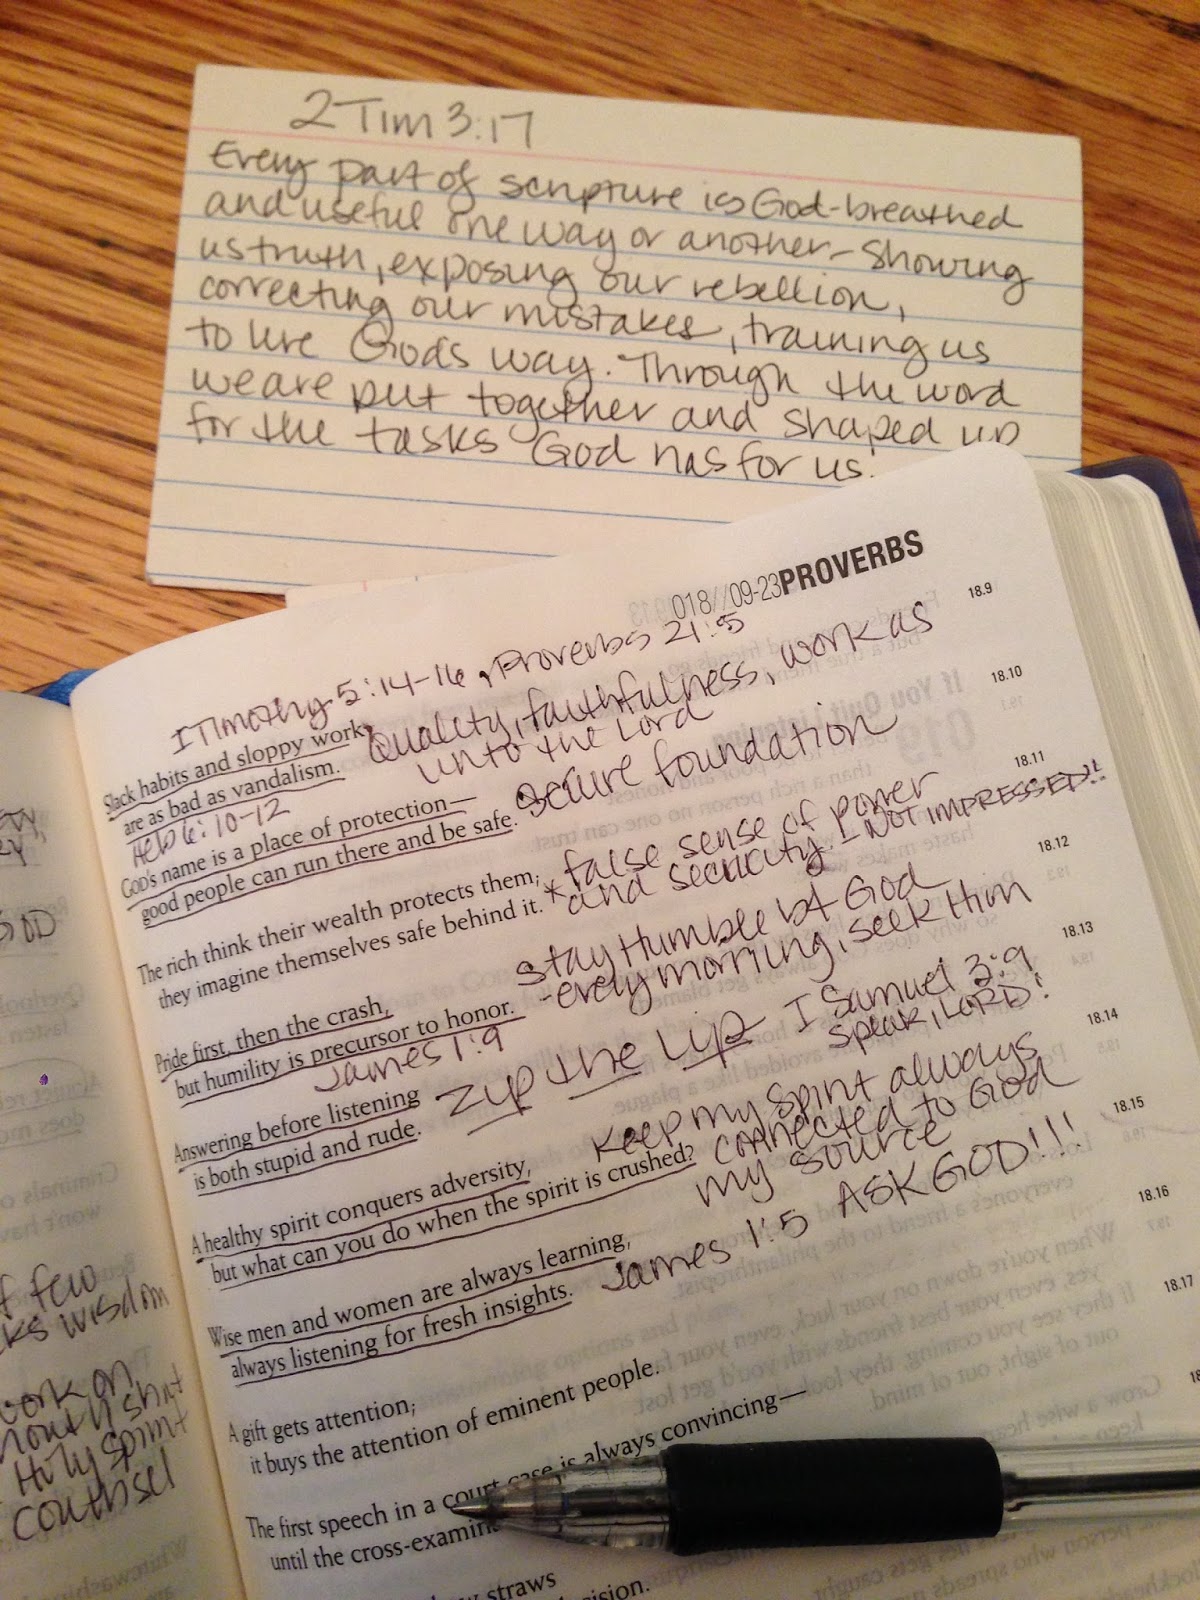 2 Tim 3:17
Every part of scripture is God-breathed
and useful one way or another - Showing
us truth, exposing our rebellion,
correcting our mistakes, training us
to live God's way. Through the word
we are put together and shaped up
for the tasks God has for us.
018//09-23PROVERBS
I Timothy 5:14-16, Proverbs 21:5
Slack habits and sloppy work
are as bad as vandalism.
18.9
Quality, faithfulness, work as
unto the Lord
Heb 6:10-12
GOD's name is a place of protection—
good people can run there and be safe.
18.10
Secure foundation
The rich think their wealth protects them;
they imagine themselves safe behind it.
18.11
* false sense of power
and security. I NOT IMPRESSED!!
Pride first, then the crash,
but humility is precursor to honor.
18.12
Stay Humble b4 God
- every morning, seek Him
James 1:9
Answering before listening
is both stupid and rude.
18.13
Zip the Lip
I Samuel 3:9
Speak, LORD!
A healthy spirit conquers adversity,
but what can you do when the spirit is crushed?
18.14
Keep my spirit always
connected to God
my source
Wise men and women are always learning,
always listening for fresh insights.
18.15
James 1:5 ASK GOD!!!
A gift gets attention;
it buys the attention of eminent people.
18.16
The first speech in a court case is always convincing—
until the cross-examin
18.17
straws
few
wisdom
work on
Holy Spirit